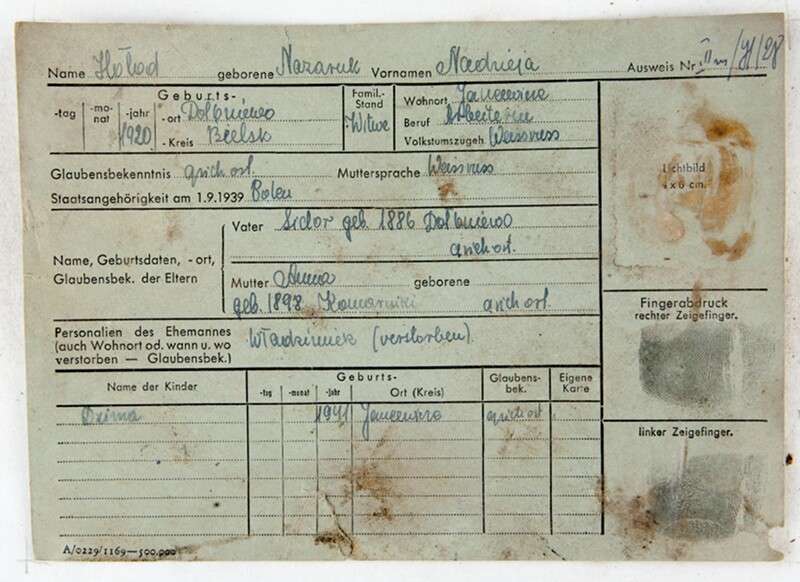 Name Hołod geborene Nazaruk Vornamen Nadzieja Ausweis Nr.
Geburts-
-tag -mo-nat -jahr 1920 -ort Dołbniewo
-Kreis Bielsk
Famil.-Stand Witwe
Wohnort Jancewicze
Beruf Arbeiterin
Volkstumszugeh Weissruss
Glaubensbekenntnis griech ort. Muttersprache Weissruss
Staatsangehörigkeit am 1.9.1939 Polen
Name, Geburtsdaten, -ort,
Glaubensbek. der Eltern
Vater Sidor geb. 1886 Dołbniewo
griech ort.
Mutter Anna geborene
geb. 1898 griech ort
Personalien des Ehemannes
(auch Wohnort od. wann u. wo
verstorben — Glaubensbek.)
(verstorben).
Lichtbild
4 x 6 cm.
Fingerabdruck
rechter Zeigefinger.
linker Zeigefinger.
Name der Kinder Geburts- Glaubens-bek. Eigene Karte
-tag -monat -jahr Ort (Kreis)
1941 griech ort
A/0229/1169—500.000